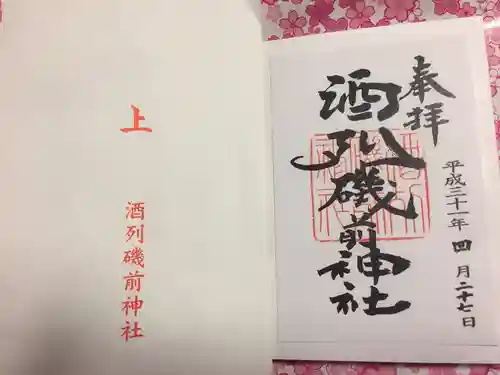 上
酒列磯前神社
奉拝
酒列磯前神社
平成三十一年四月二十七日